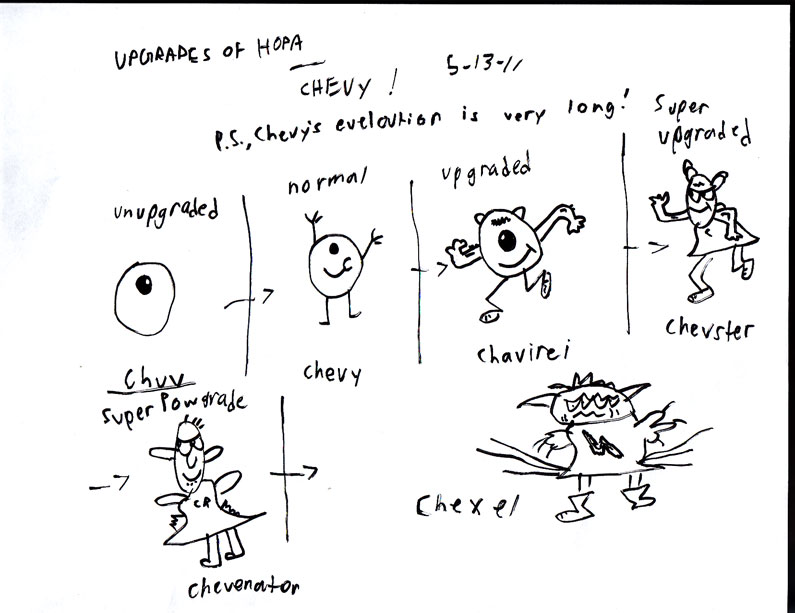 UPGRADES OF HOPA
CHEVY! 5-13-11
P.S., Chevy's eveloution is very long!
unupgraded
normal
upgraded
Super upgraded
Chuv
chevy
chavirei
chevster
super Powgrade
CR
chevenator
Chexel